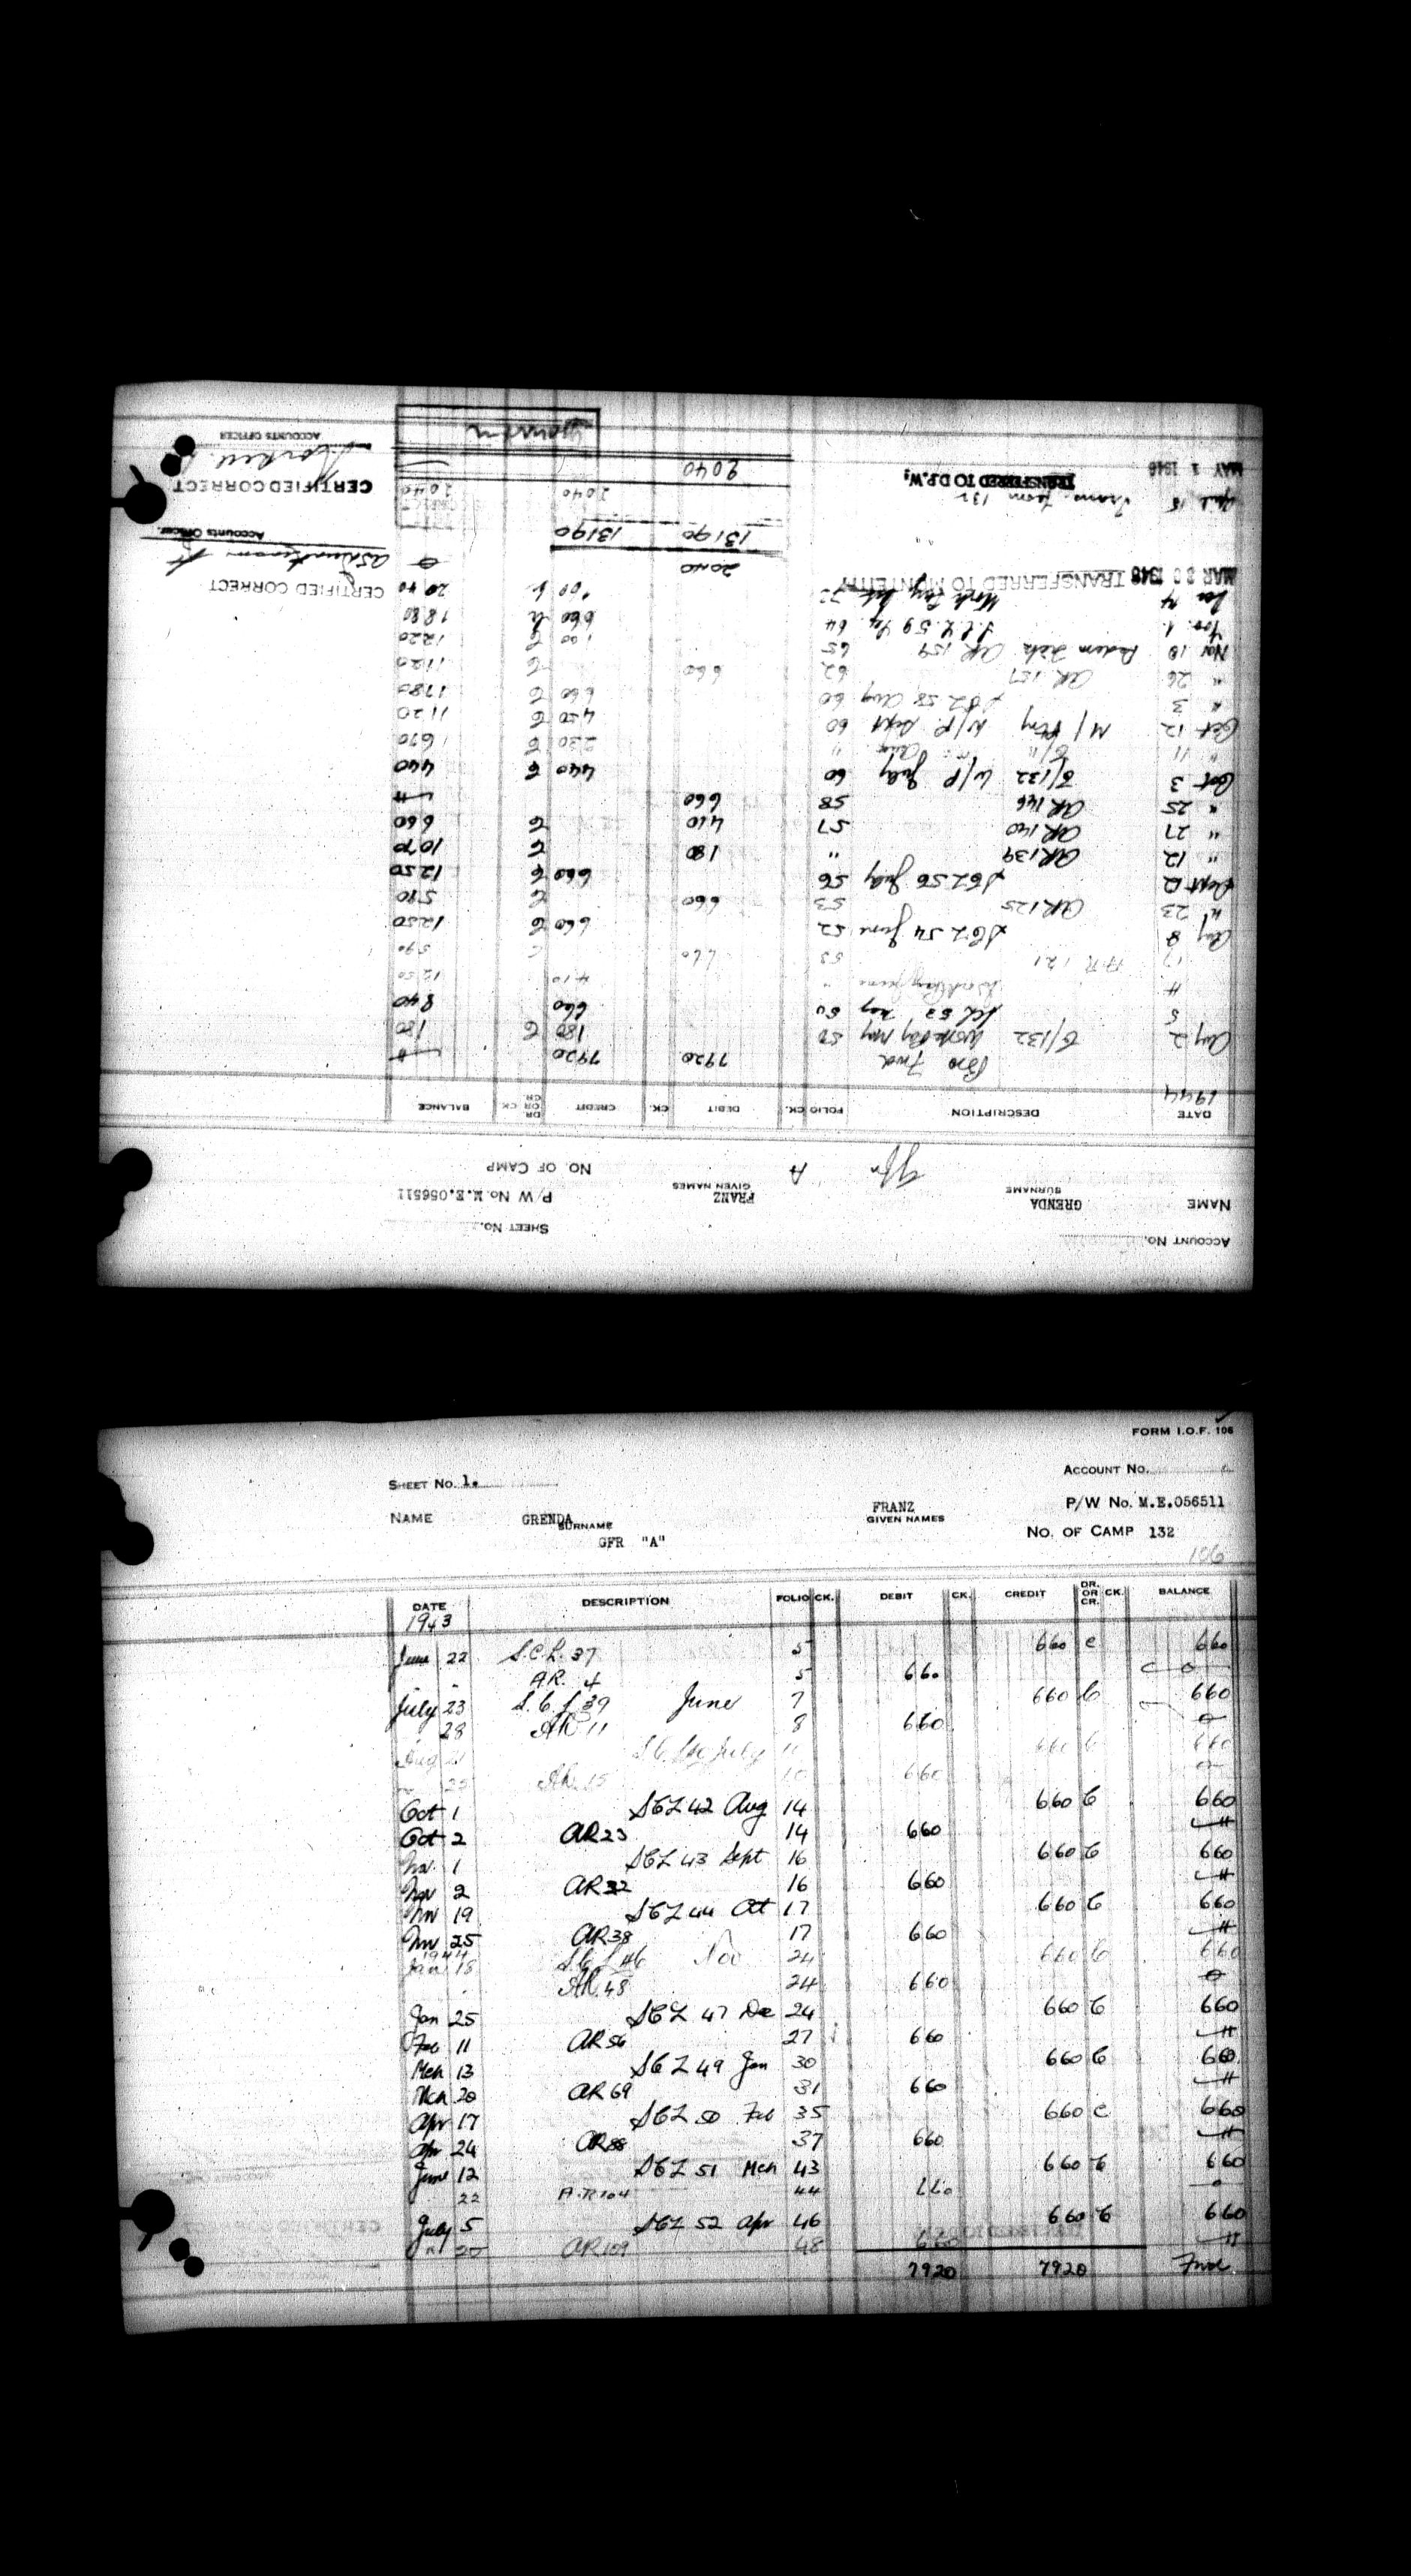 ACCOUNT No.
SHEET No.
NAME GRENDA FRANZ P/W No. M.E.056511
SURNAME GIVEN NAMES
A NO. OF CAMP
DATE DESCRIPTION FOLIO CK. DEBIT CK. CREDIT DR. OR CR. CK. BALANCE
1944
Bro Fwd 7920 7920
Aug 2 B/132 Work Pay May 50 180 C 180
5 SCL 53 May 50 660 840
4 Work Pay June " 410 1250
17 AR 121 53 660 C 590
Aug 8 SCL 54 June 52 660 C 1250
" 23 AR 125 53 660 C 590
Sept 2 SCL 56 July 56 660 C 1250
" 12 AR 139 " 180 C 1070
" 27 AR 140 57 410 C 660
" 25 AR 146 58 660
Oct 3 B/132 W/P July 60 440 C 440
" 11 B/11 Aug " 230 C 670
Oct 12 M/ Pay W/P Sept 60 450 C 1120
" 3 SCL 58 Aug 60 660 C 1780
" 26 AR 157 62 660 C 1120
Nov 18 AR 159 65 100 C 1220
Nov. 1. S.C.L. 59 64 660 1880
Dec 14 Work Pay 2040
MAR 30 1946 TRANSFERRED TO MONTEITH 2040
CERTIFIED CORRECT
Accounts Officer.
13190 13190
April 15 Trans. from 132 2040 2040
MAY 1 1946 TRANSFERRED TO D.P.W. 2040
CERTIFIED CORRECT
ACCOUNTS OFFICER
FORM I.O.F. 106
SHEET No. 1. ACCOUNT No.
NAME GRENDA FRANZ P/W No. M.E.056511
SURNAME GIVEN NAMES
GFR "A" NO. OF CAMP 132
106
DATE DESCRIPTION FOLIO CK. DEBIT CK. CREDIT DR. OR CR. CK. BALANCE
1943
June 22 S.C.L. 37 5 660 C 660
" A.R. 4 5 660 0
July 23 S.C.L 39 June 7 660 C 660
28 AR 11 8 660 0
Aug 21 S.C.L 40 July 10 660 C 660
" 25 AR. 15 10 660 0
Oct 1 SCL 42 Aug 14 660 C 660
Oct 2 AR 23 14 660
Nov. 1 SCL 43 Sept 16 660 C 660
Nov 2 AR 32 16 660
Nov 19 SCL 44 Oct 17 660 C 660
Nov 25 AR 38 17 660
1944
Jan 18 S.C.L 46 Nov 24 660 C 660
AR. 48 24 660 0
Jan 25 SCL 47 Dec 24 660 C 660
Feb 11 AR 56 27 660
Mch 13 SCL 49 Jan 30 660 C 660
Mch 20 AR 69 31 660
Apr 17 SCL 50 Feb 35 660 C 660
Apr 24 AR 88 37 660
June 12 SCL 51 Mch 43 660 C 660
22 A.R 104 44 660 0
July 5 SCL 52 Apr 46 660 C 660
" 20 AR 109 48 660
7920 7920 Fwd